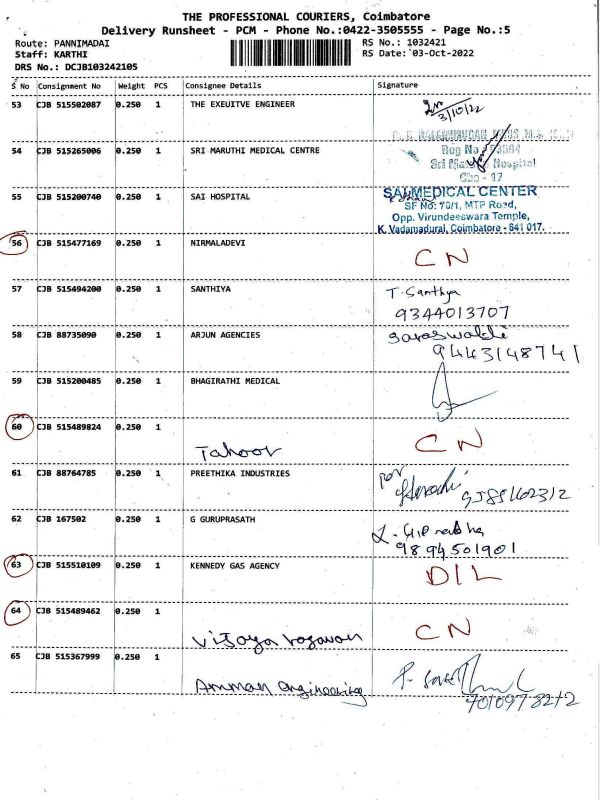 THE PROFESSIONAL COURIERS, Coimbatore
Delivery Runsheet - PCM - Phone No.:0422-3505555 - Page No.:5
Route: PANNIMADAI RS No.: 1032421
Staff: KARTHI RS Date: 03-Oct-2022
DRS No.: DCJB103242105
S No Consignment No Weight PCS Consignee Details Signature
53 CJB 515502087 0.250 1 THE EXEUITVE ENGINEER
3/10/22
Reg No
54 CJB 515265006 0.250 1 SRI MARUTHI MEDICAL CENTRE
Hospital
Cbe - 17
55 CJB 515200740 0.250 1 SAI HOSPITAL SAI MEDICAL CENTER
SF No: 70/1, MTP Road,
Opp. Virundeeswara Temple,
K. Vadamadurai, Coimbatore - 641 017.
56 CJB 515477169 0.250 1 NIRMALADEVI CN
57 CJB 515494200 0.250 1 SANTHIYA T. Santhya
9344013707
58 CJB 88735090 0.250 1 ARJUN AGENCIES
9443148741
59 CJB 515200485 0.250 1 BHAGIRATHI MEDICAL
60 CJB 515489824 0.250 1 CN
Tahoor
61 CJB 88764785 0.250 1 PREETHIKA INDUSTRIES
62 CJB 167502 0.250 1 G GURUPRASATH
9894501901
63 CJB 515510109 0.250 1 KENNEDY GAS AGENCY D/L
64 CJB 515489462 0.250 1 CN
Vijaya
65 CJB 515367999 0.250 1
Amman Engineering